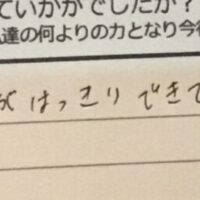 ていかがでしたか？
達の何よりの力となり今後
がはっきりできて